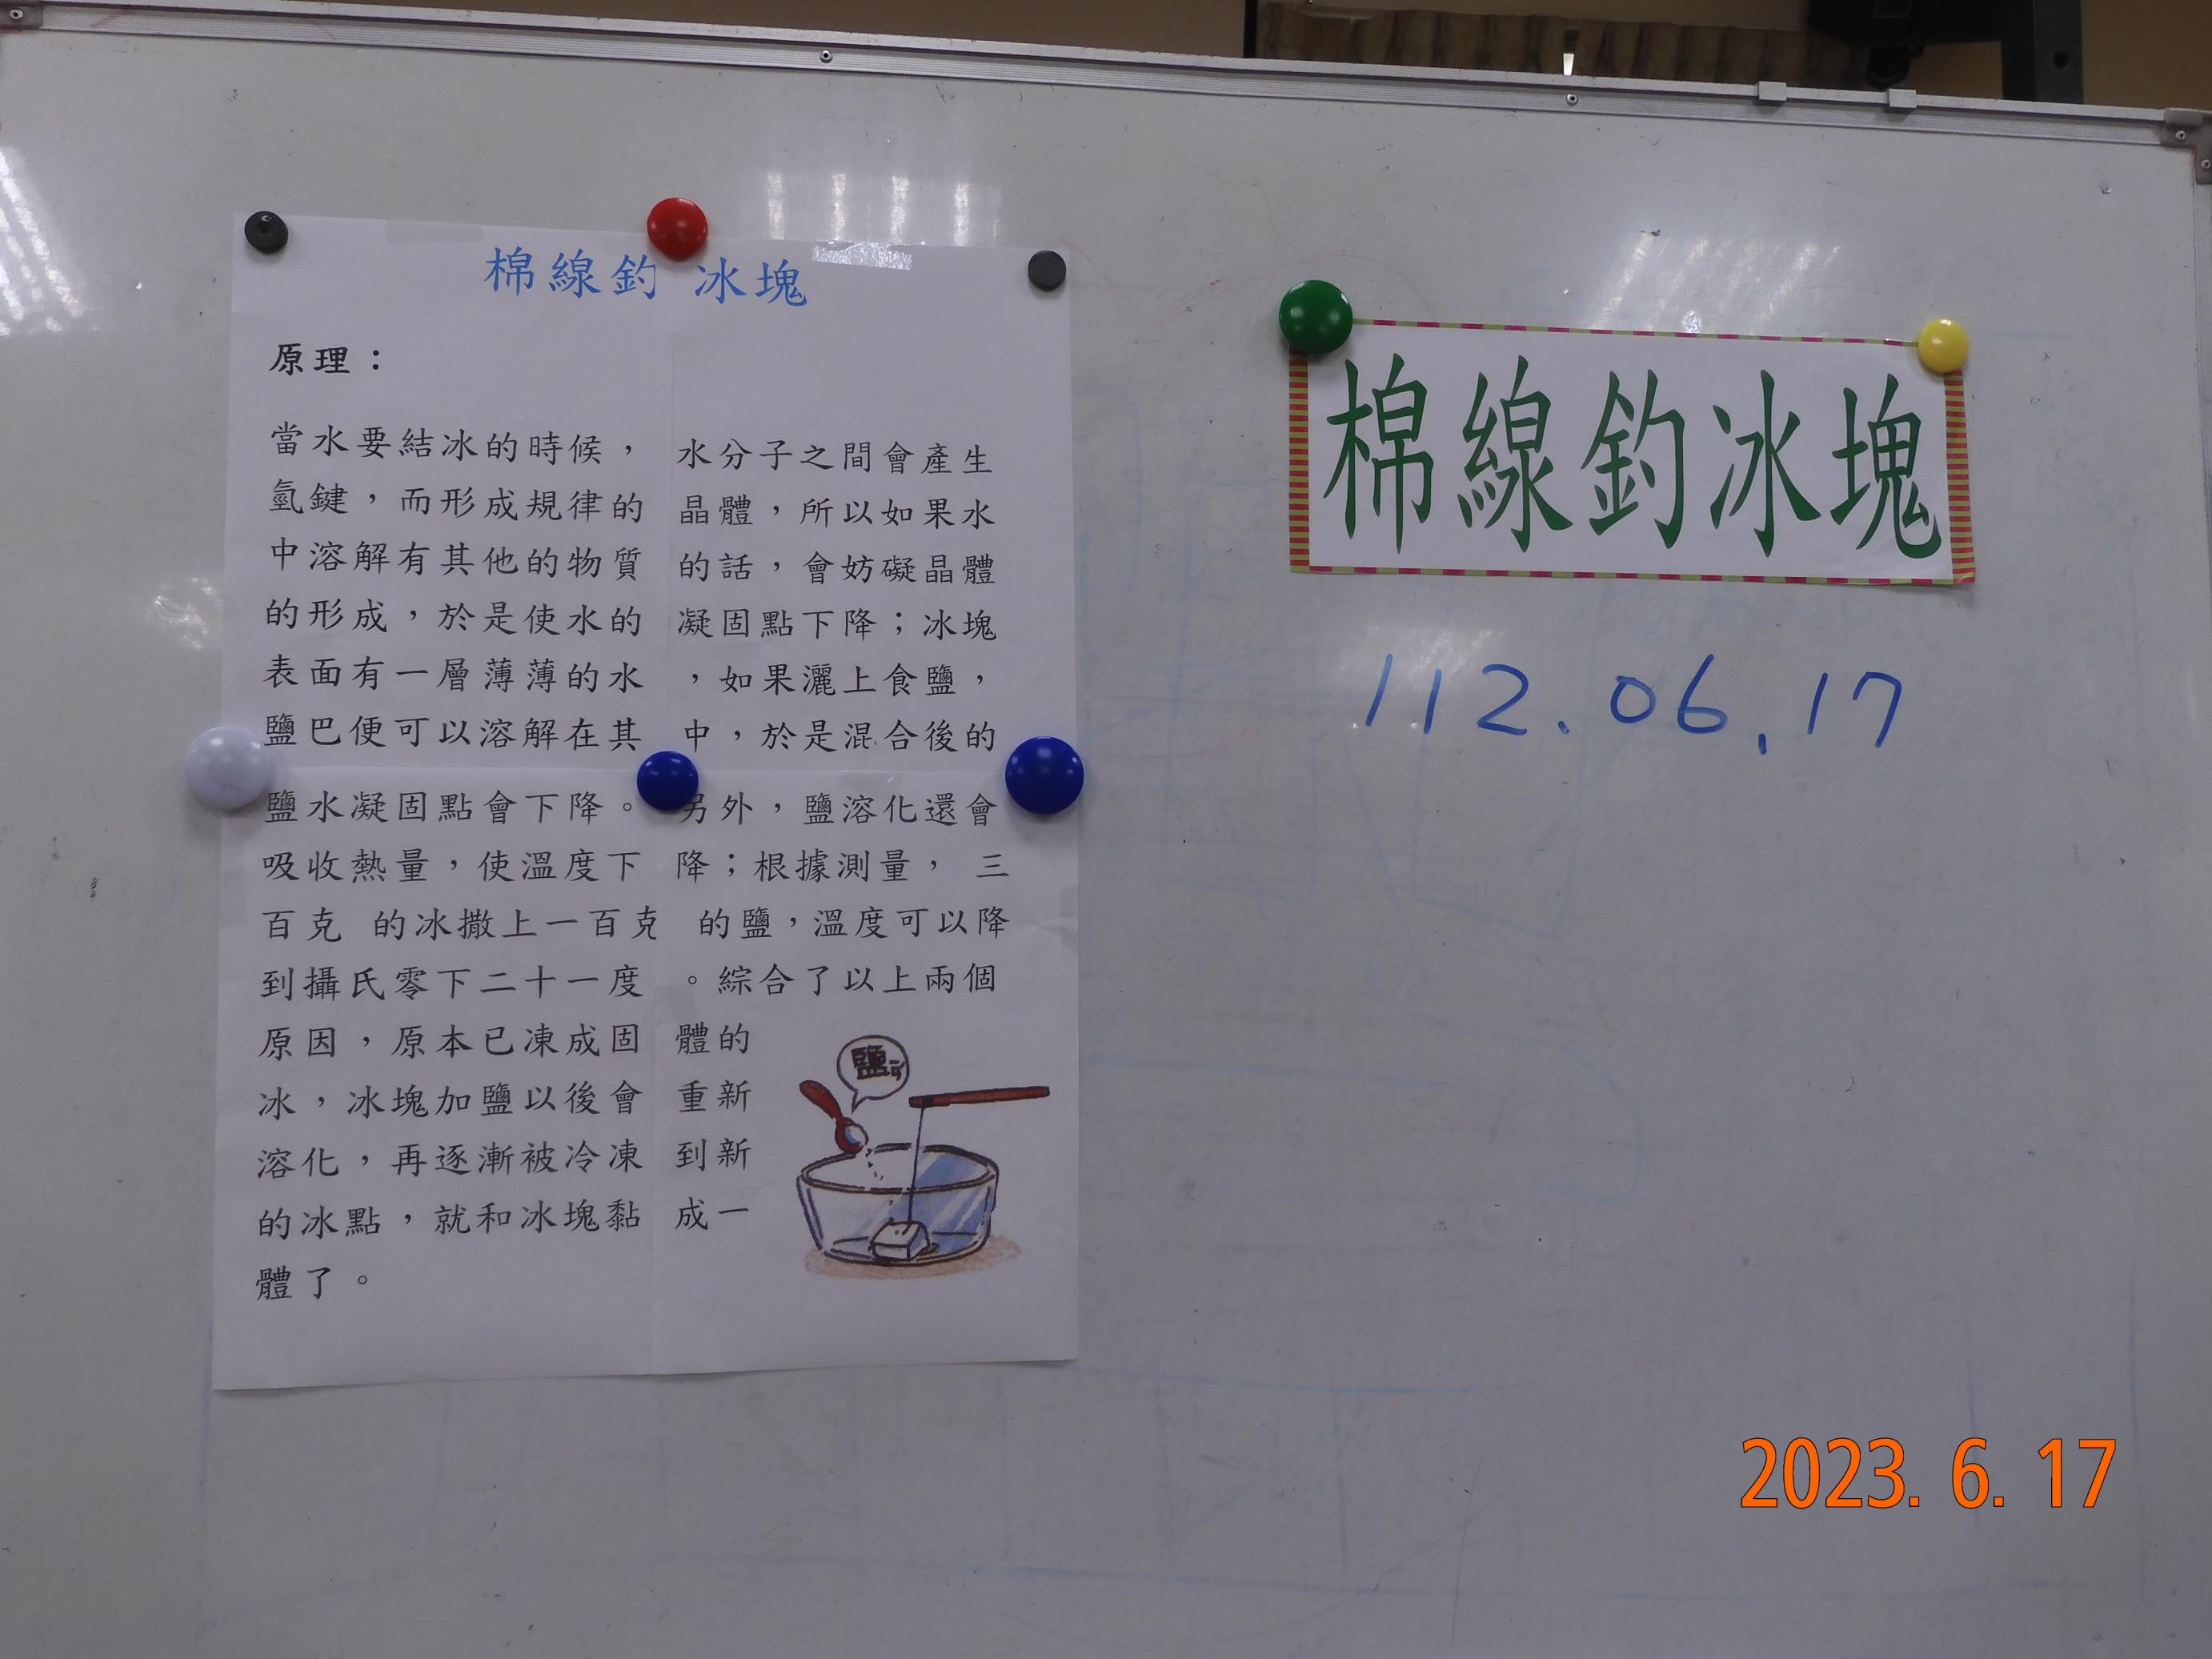 棉線釣冰塊
原理：
當水要結冰的時候，水分子之間會產生
氫鍵，而形成規律的晶體，所以如果水
中溶解有其他的物質的話，會妨礙晶體
的形成，於是使水的凝固點下降；冰塊
表面有一層薄薄的水，如果灑上食鹽，
鹽巴便可以溶解在其中，於是混合後的
鹽水凝固點會下降。另外，鹽溶化還會
吸收熱量，使溫度下降；根據測量， 三
百克 的冰撒上一百克 的鹽，溫度可以降
到攝氏零下二十一度。綜合了以上兩個
原因，原本已凍成固體的
冰，冰塊加鹽以後會重新
溶化，再逐漸被冷凍到新
的冰點，就和冰塊黏成一
體了。
鹽
棉線釣冰塊
112.06.17
2023. 6. 17